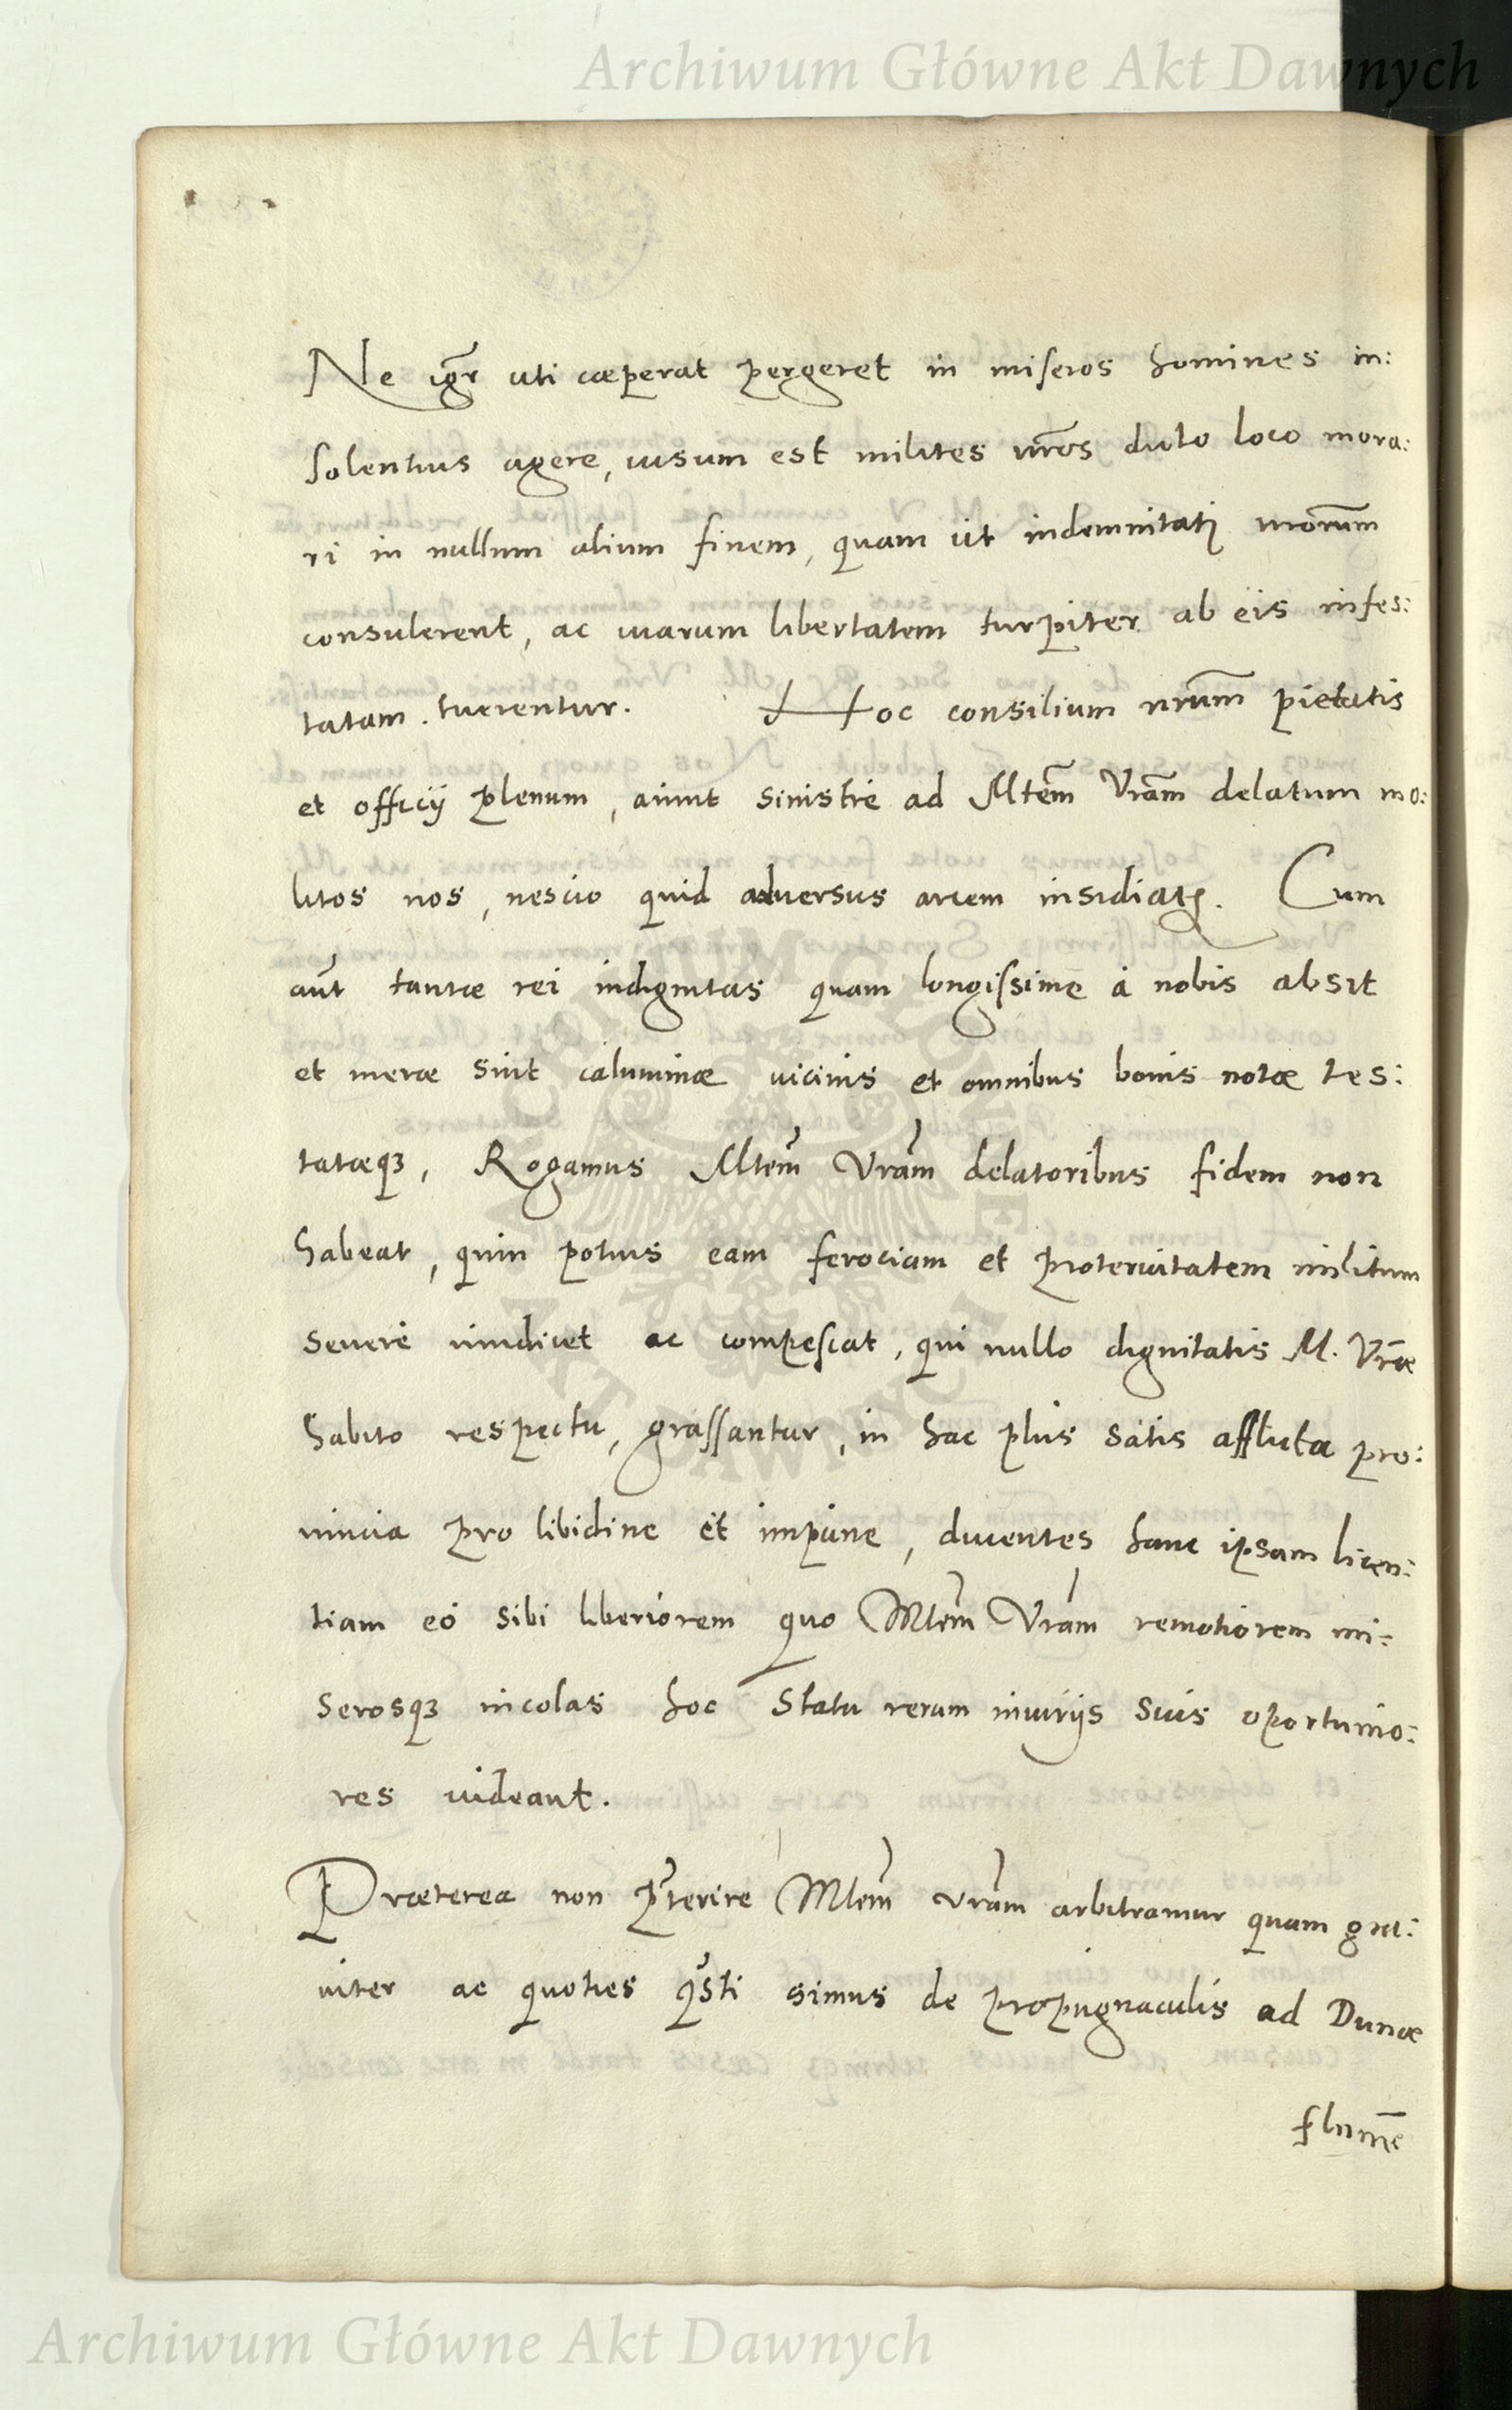 Archiwum Główne Akt Dawnych
Ne igr̃ uti cæperat pergeret in miseros homines in:
solentius agere, uisum est milites nr̃os dicto loco mora:
ri in nullum alium finem, quam ut indemnitati nrõrum
consulerent, ac uiarum libertatem turpiter ab eis infes:
tatam tuerentur. Hoc consilium nr̃um pietatis
et officij plenum, aiunt sinistrè ad Mtem̃ Vram̃ delatum mo:
litos nos, nescio quid aduersus arcem insidiarũ. Cum
aut̃ tantæ rei indignitas quam longissime à nobis absit
et meræ sint calumniæ uicinis et omnibus bonis notæ tes:
tatæqꝫ, Rogamus Mtem̃ Vram̃ delatoribus fidem non
habeat, quin potius eam ferociam et proteruitatem militum
seuerè uindicet ac compescat, qui nullo dignitatis M. Vr̃æ
habito respectu, grassantur, in hac plus satis afflicta pro:
uincia pro libidine et impune, ducentes hanc ipsam licen:
tiam eò sibi liberiorem quo Mtem̃ Vram̃ remotiorem mi:
serosqꝫ incolas hoc statu rerum iniurijs suis oportunio:
res uideant.
Præterea non p̃terire Mtem̃ Vram̃ arbitramur quam gra:
uiter ac quoties q̃sti simus de propugnaculis ad Dunæ
flumẽ
Archiwum Główne Akt Dawnych